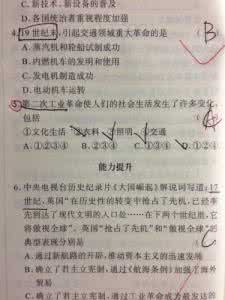 C.新技术、新设备的普及
D.各国统治者重视程度加强
4.19世纪末,引起交通领域重大革命的是 B
A.蒸汽机和轮船制成功
B.内燃机的发明和使用
C.发电机制造成功
D.电动机车运行
5.第二次工业革命使人们的社会生活发生了许多变化,
包括
①文化生活 ②衣料 ③照明 ④交通
A.①②③④ B.②③④ C.①③④ D.①②④
能力提升
6.中央电视台历史纪录片《大国崛起》解说词写道:17
世纪,英国“在历史性的转变中抢占了先机,已经率
先到达了现代文明的入口处……在下两个世纪里,它
将傲视全球”。英国“抢占了先机”和“傲视全球”的
典型表现分别是 C
A.通过新航路的开辟,推动资本主义的迅速发展
B.确立了君主立宪制,通过《航海条例》加强了海外
贸易
C.确立了君主立宪制,通过工业革命成为